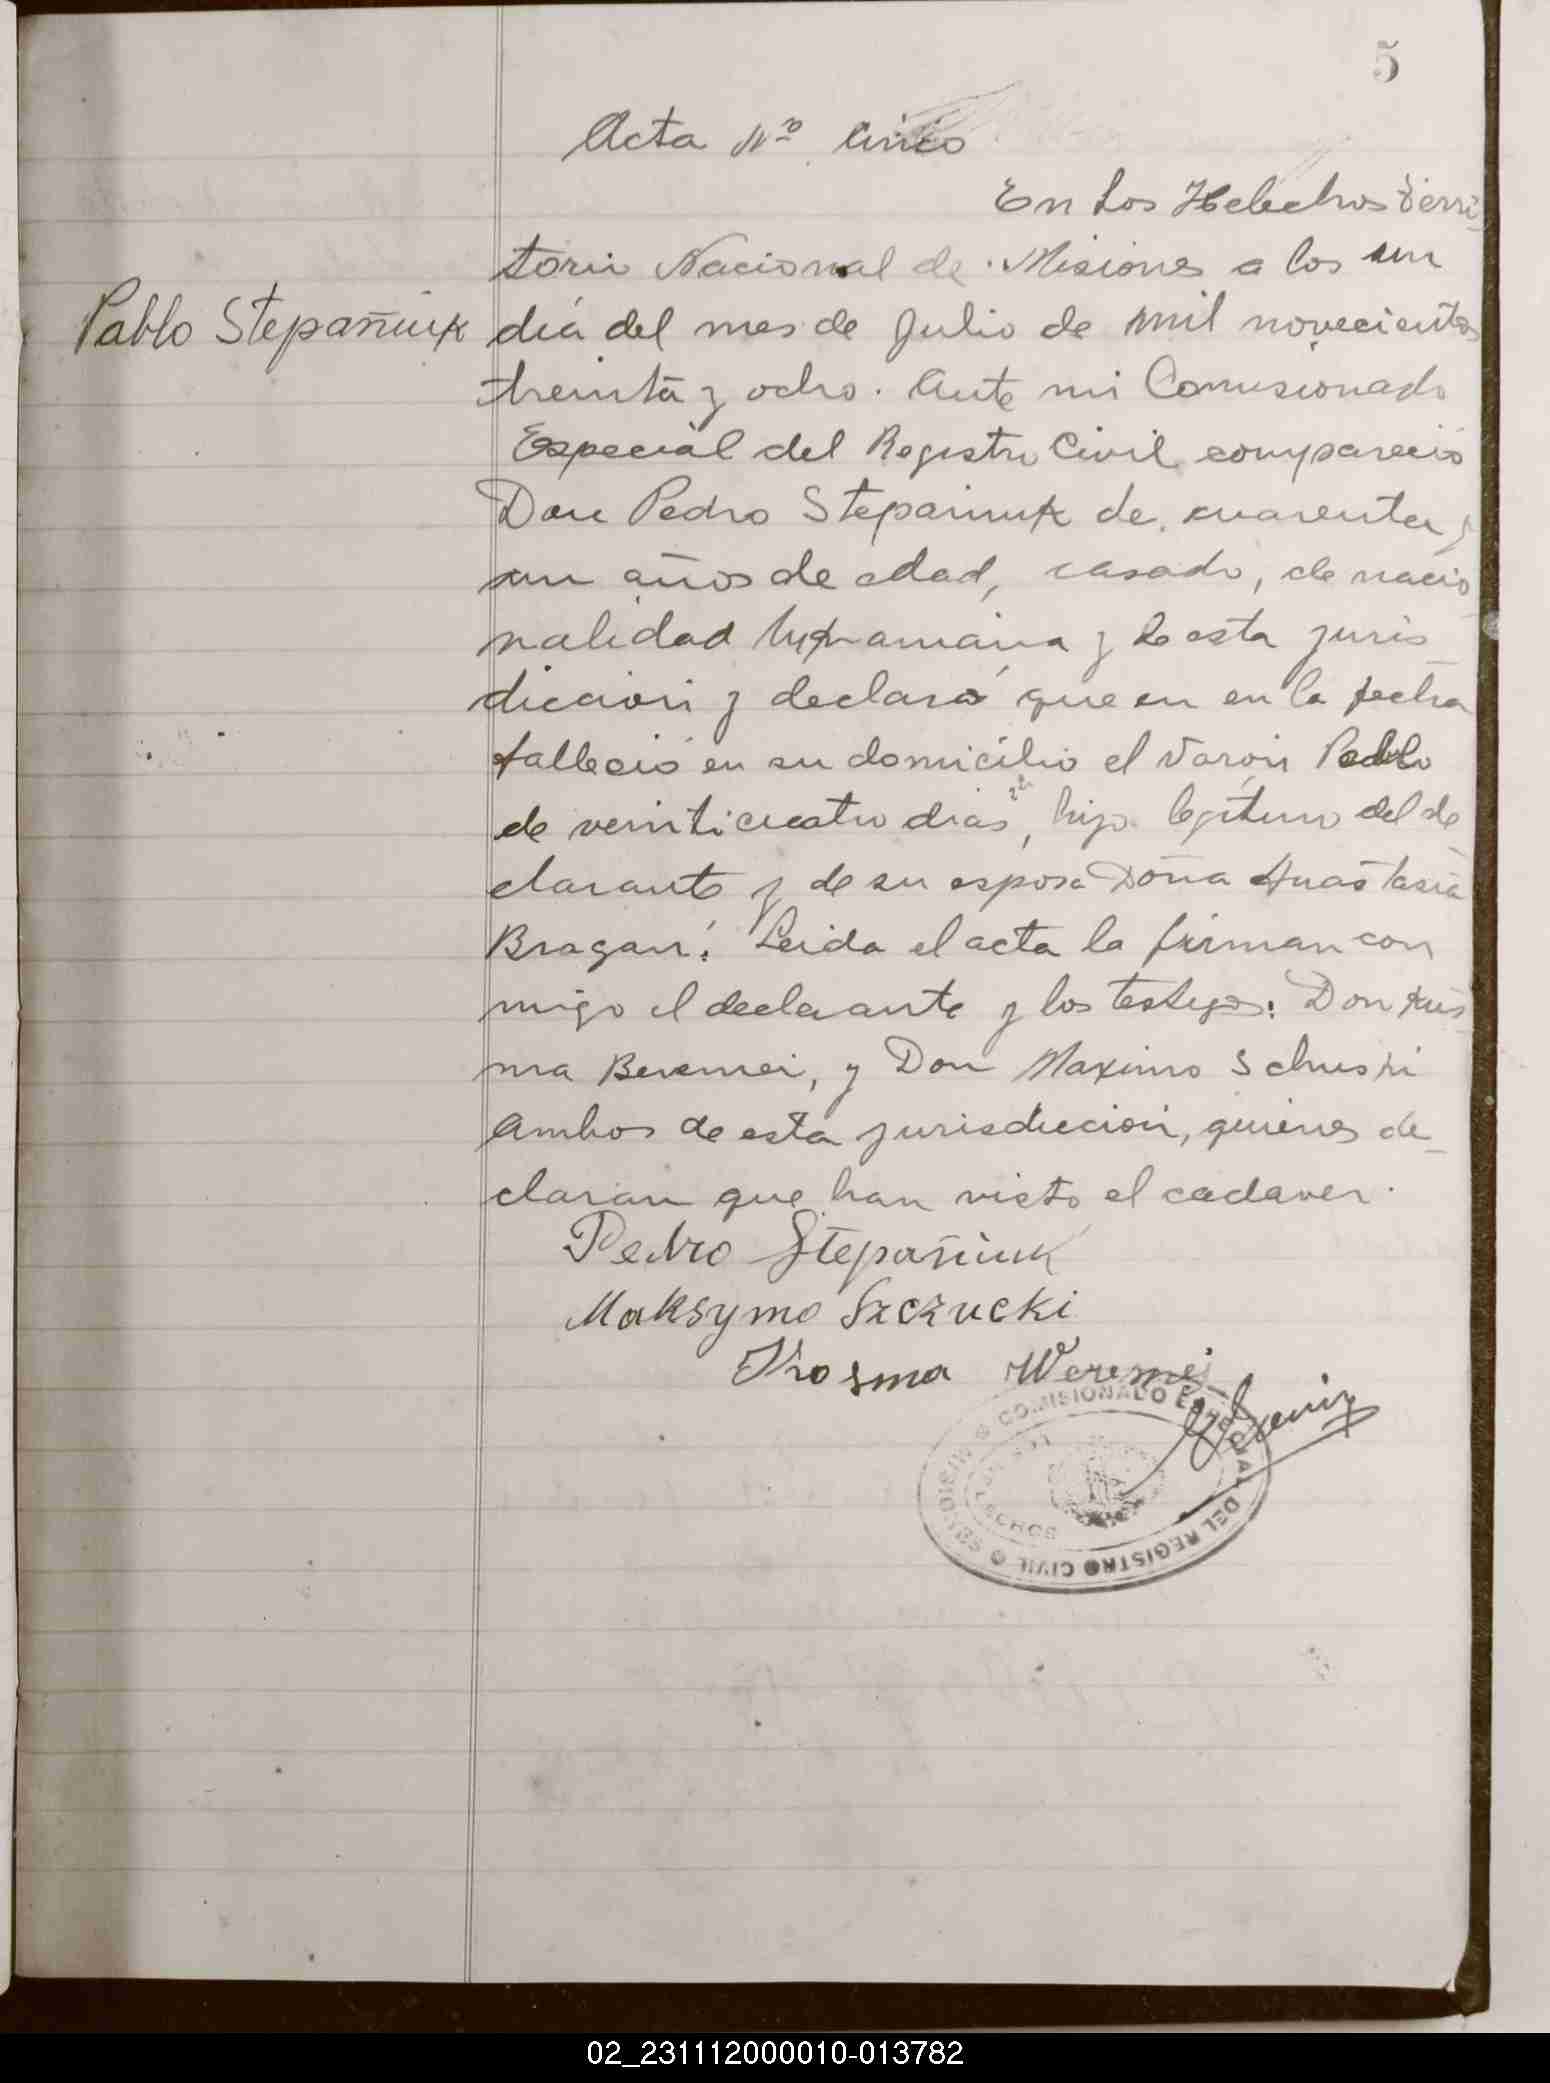 5
Acta Nº Cinco
En Los Helechos Terri
torio Nacional de Misiones a los un
Pablo Stepañiuk
dia del mes de Julio de mil novecientos
treinta y ocho. Ante mi Comisionado
Especial del Registro Civil compareció
Don Pedro Stepaniuk de cuarenta y
un años de edad, casado, de nacio
nalidad y de esta juris
diccion y declaró que en en la fecha
falleció en su domicilio el varón Pablo
de veinticuatro dias, hijo legitimo del de
clarante y de su esposa Doña Anastasia
Bragan. Leida el acta la firman con
migo el declarante y los testigos: Don Kus
ma Beremei, y Don Maximo Schuski
ambos de esta jurisdiccion, quienes de_
claran que han visto el cadaver.
Pedro Stepañiuk
Maksymo Szczucki
Kosma Weremej
COMISIONADO ESPECIAL DEL REGISTRO CIVIL
MISIONES
LOS HELECHOS
02_231112000010-013782